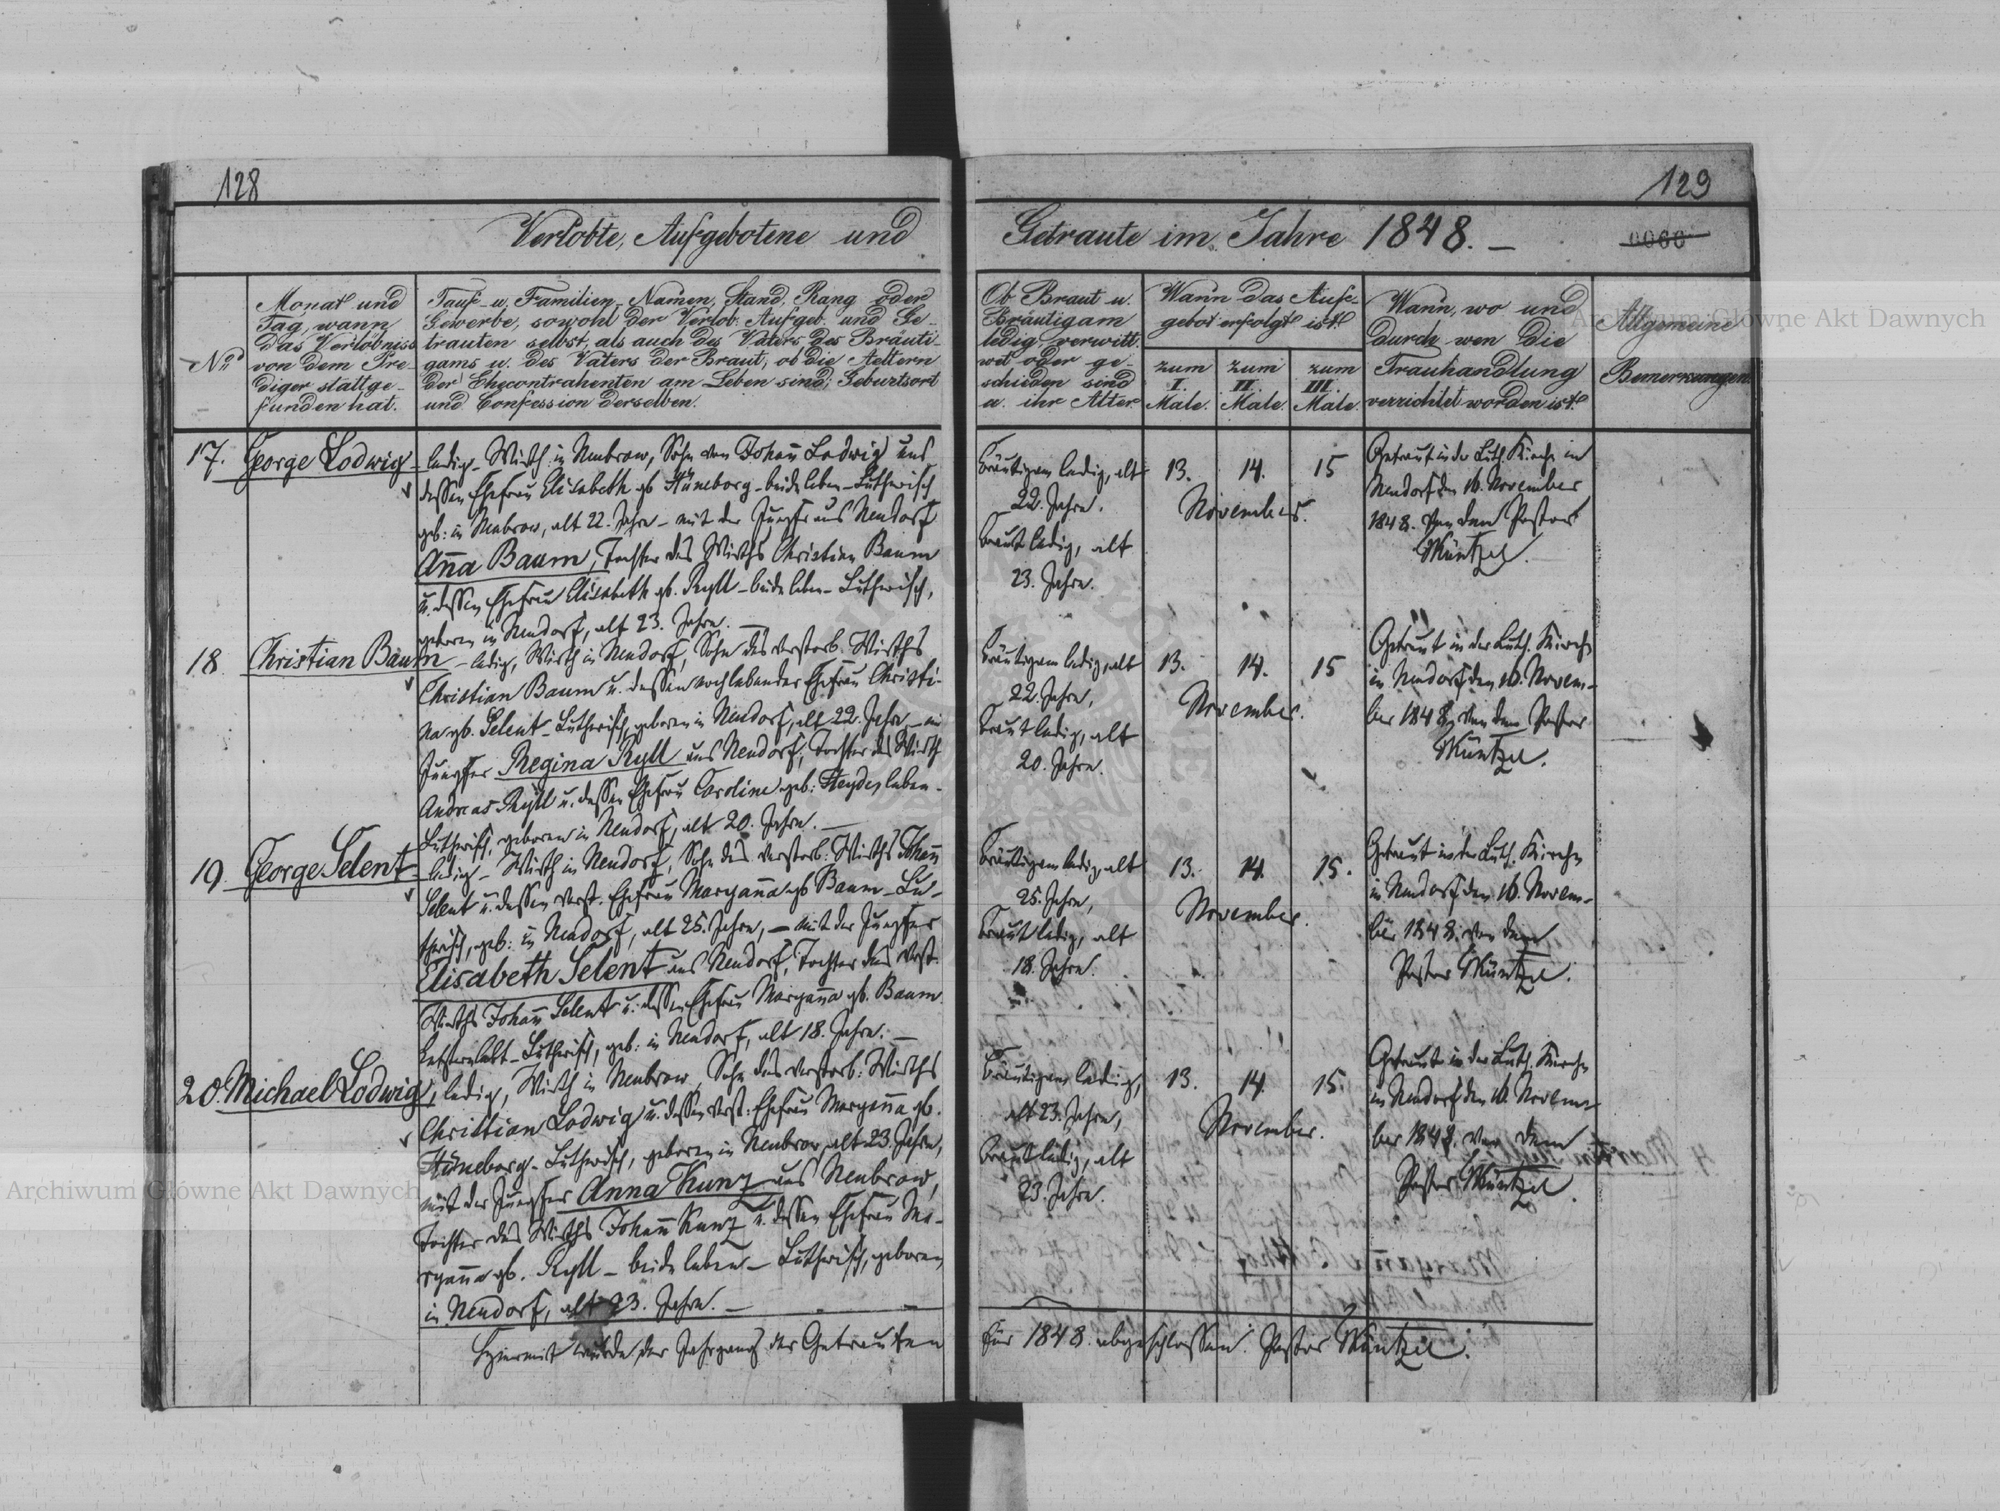 128
129
Verlobte, Aufgebotene und
Getraute im Jahre 1848. –
0066
No
Monat und
Tag, wann
das Verlöbniss
von dem Pre-
diger stattge-
funden hat.
Tauf- u. Familien-Namen, Stand, Rang oder
Gewerbe, sowohl der Verlob. Aufgeb. und Ge-
trauten selbst, als auch des Vaters des Bräuti-
gams u. des Vaters der Braut, ob die Aeltern
der Ehecontrahenten am Leben sind; Geburtsort
und Confession derselben.
Ob Braut u.
Bräutigam
ledig, verwitt-
wet oder ge-
schieden sind
u. ihr Alter
Wann das Auf-
gebot erfolgt ist.
zum
I.
Male.
zum
II.
Male.
zum
III.
Male.
Wann, wo und
durch wen die
Trauhandlung
verrichtet worden ist.
Allgemeine
Bemerkungen
17. George Lodwig
ledig – Wirth in Neubrow, Sohn von Johañ Lodwig und
dessen Ehefrau Elisabeth gb Hüneborg – beide leben – Lutherisch
geb: in Neubrow, alt 22. Jahre – mit der Jungfr aus Neudorf
Aña Baum, Tochter des Wirths Christian Baum
u. dessen Ehefrau Elisabeth gb. Ryll – beide leben – Lutherisch,
geboren in Neudorf, alt 23. Jahre. —
Bräutigam ledig, alt
22. Jahre.
Braut ledig, alt
23. Jahre.
13. 14. 15
November.
Getraut in der Luth. Kirche in
Neudorf den 16. November
1848. von dem Pastor
Müntzel.
18. Christian Baum
– ledig, Wirth in Neudorf, Sohn des verstorb. Wirths
Christian Baum u. dessen noch lebender Ehefrau Christi-
na gb. Selent – Lutherisch, geboren in Neudorf, alt 22. Jahre –
Jungfer Regina Ryll aus Neudorf, Tochter des Wirth
Andreas Ryll u. dessen Ehefrau Caroline geb: leben –
Lutherisch, geboren in Neudorf, alt 20. Jahre. —
Bräutigam ledig, alt
22. Jahre,
Braut ledig, alt
20. Jahre.
13. 14. 15
November.
Getraut in der Luth. Kirche
in Neudorf den 16. Novem-
ber 1848, von dem Pastor
Müntzel.
19. George Selent
ledig – Wirth in Neudorf, Sohn des verstorb: Wirths Johañ
Selent u. dessen verst. Ehefrau Maryaña gb Baum – Lu-
therisch, geb: in Neudorf, alt 25. Jahre, – mit der Jungfer
Elisabeth Selent aus Neudorf, Tochter des verst.
Wirths Johañ Selent u. dessen Ehefrau Maryaña gb. Baum.
Lutherisch, geb: in Neudorf, alt 18. Jahre. —
Bräutigam ledig, alt
25. Jahre,
Braut ledig, alt
18. Jahre.
13. 14. 15.
November.
Getraut in der Luth. Kirche
in Neudorf den 16. Novem-
ber 1848. von dem
Pastor Müntzel.
20. Michael Lodwig
, ledig, Wirth in Neubrow, Sohn des verstorb: Wirths
Christian Lodwig u. dessen verst: Ehefrau Maryaña gb.
Hüneborg – Lutherisch, geboren in Neubrow, alt 23. Jahre,
mit der Jungfer Anna Kunz aus Neubrow,
Tochter des Wirths Johañ Kunz u. dessen Ehefrau Ma-
ryaña gb. Ryll – beide leben – Lutherisch, geboren
in Neudorf, alt 23. Jahre. —
Bräutigam ledig,
alt 23. Jahre,
Braut ledig, alt
23. Jahre.
13. 14. 15.
November.
Getraut in der Luth. Kirche
in Neudorf den 16. Novem-
ber 1848. von dem
Pastor Müntzel.
Hiermit wurde der Jahrgang der Getrauten
für 1848. abgeschlossen. Pastor Müntzel.
Archiwum Główne Akt Dawnych
Archiwum Główne Akt Dawnych